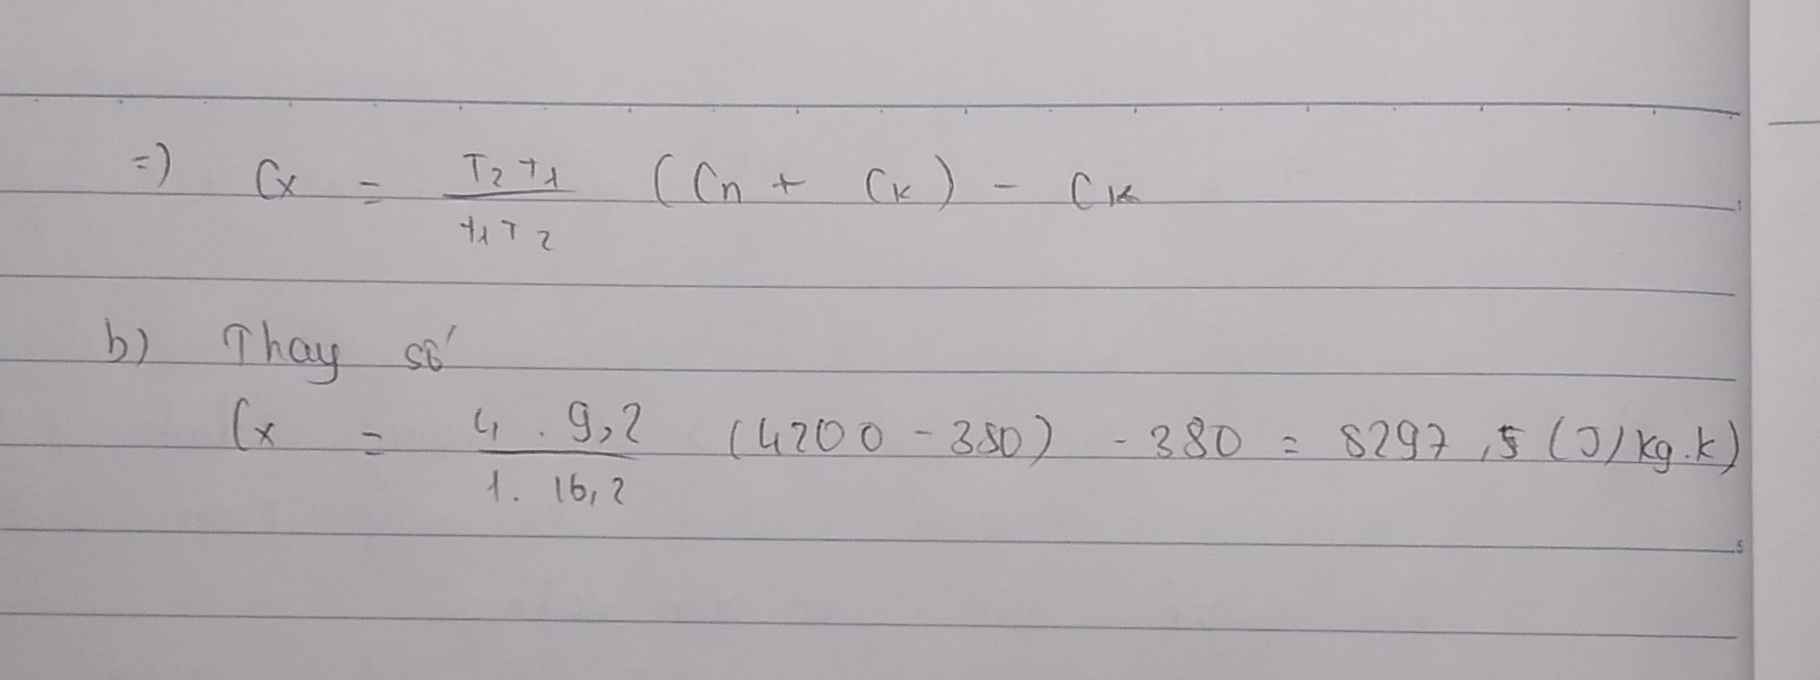 =) Cx = T₂t₁ / t₁T₂ (Cn + Ck) - Ck
b) Thay số
Cx = 4 . 9,2 / 1 . 16,2 (4200 - 380) - 380 = 8297,5 (J/kg.k)